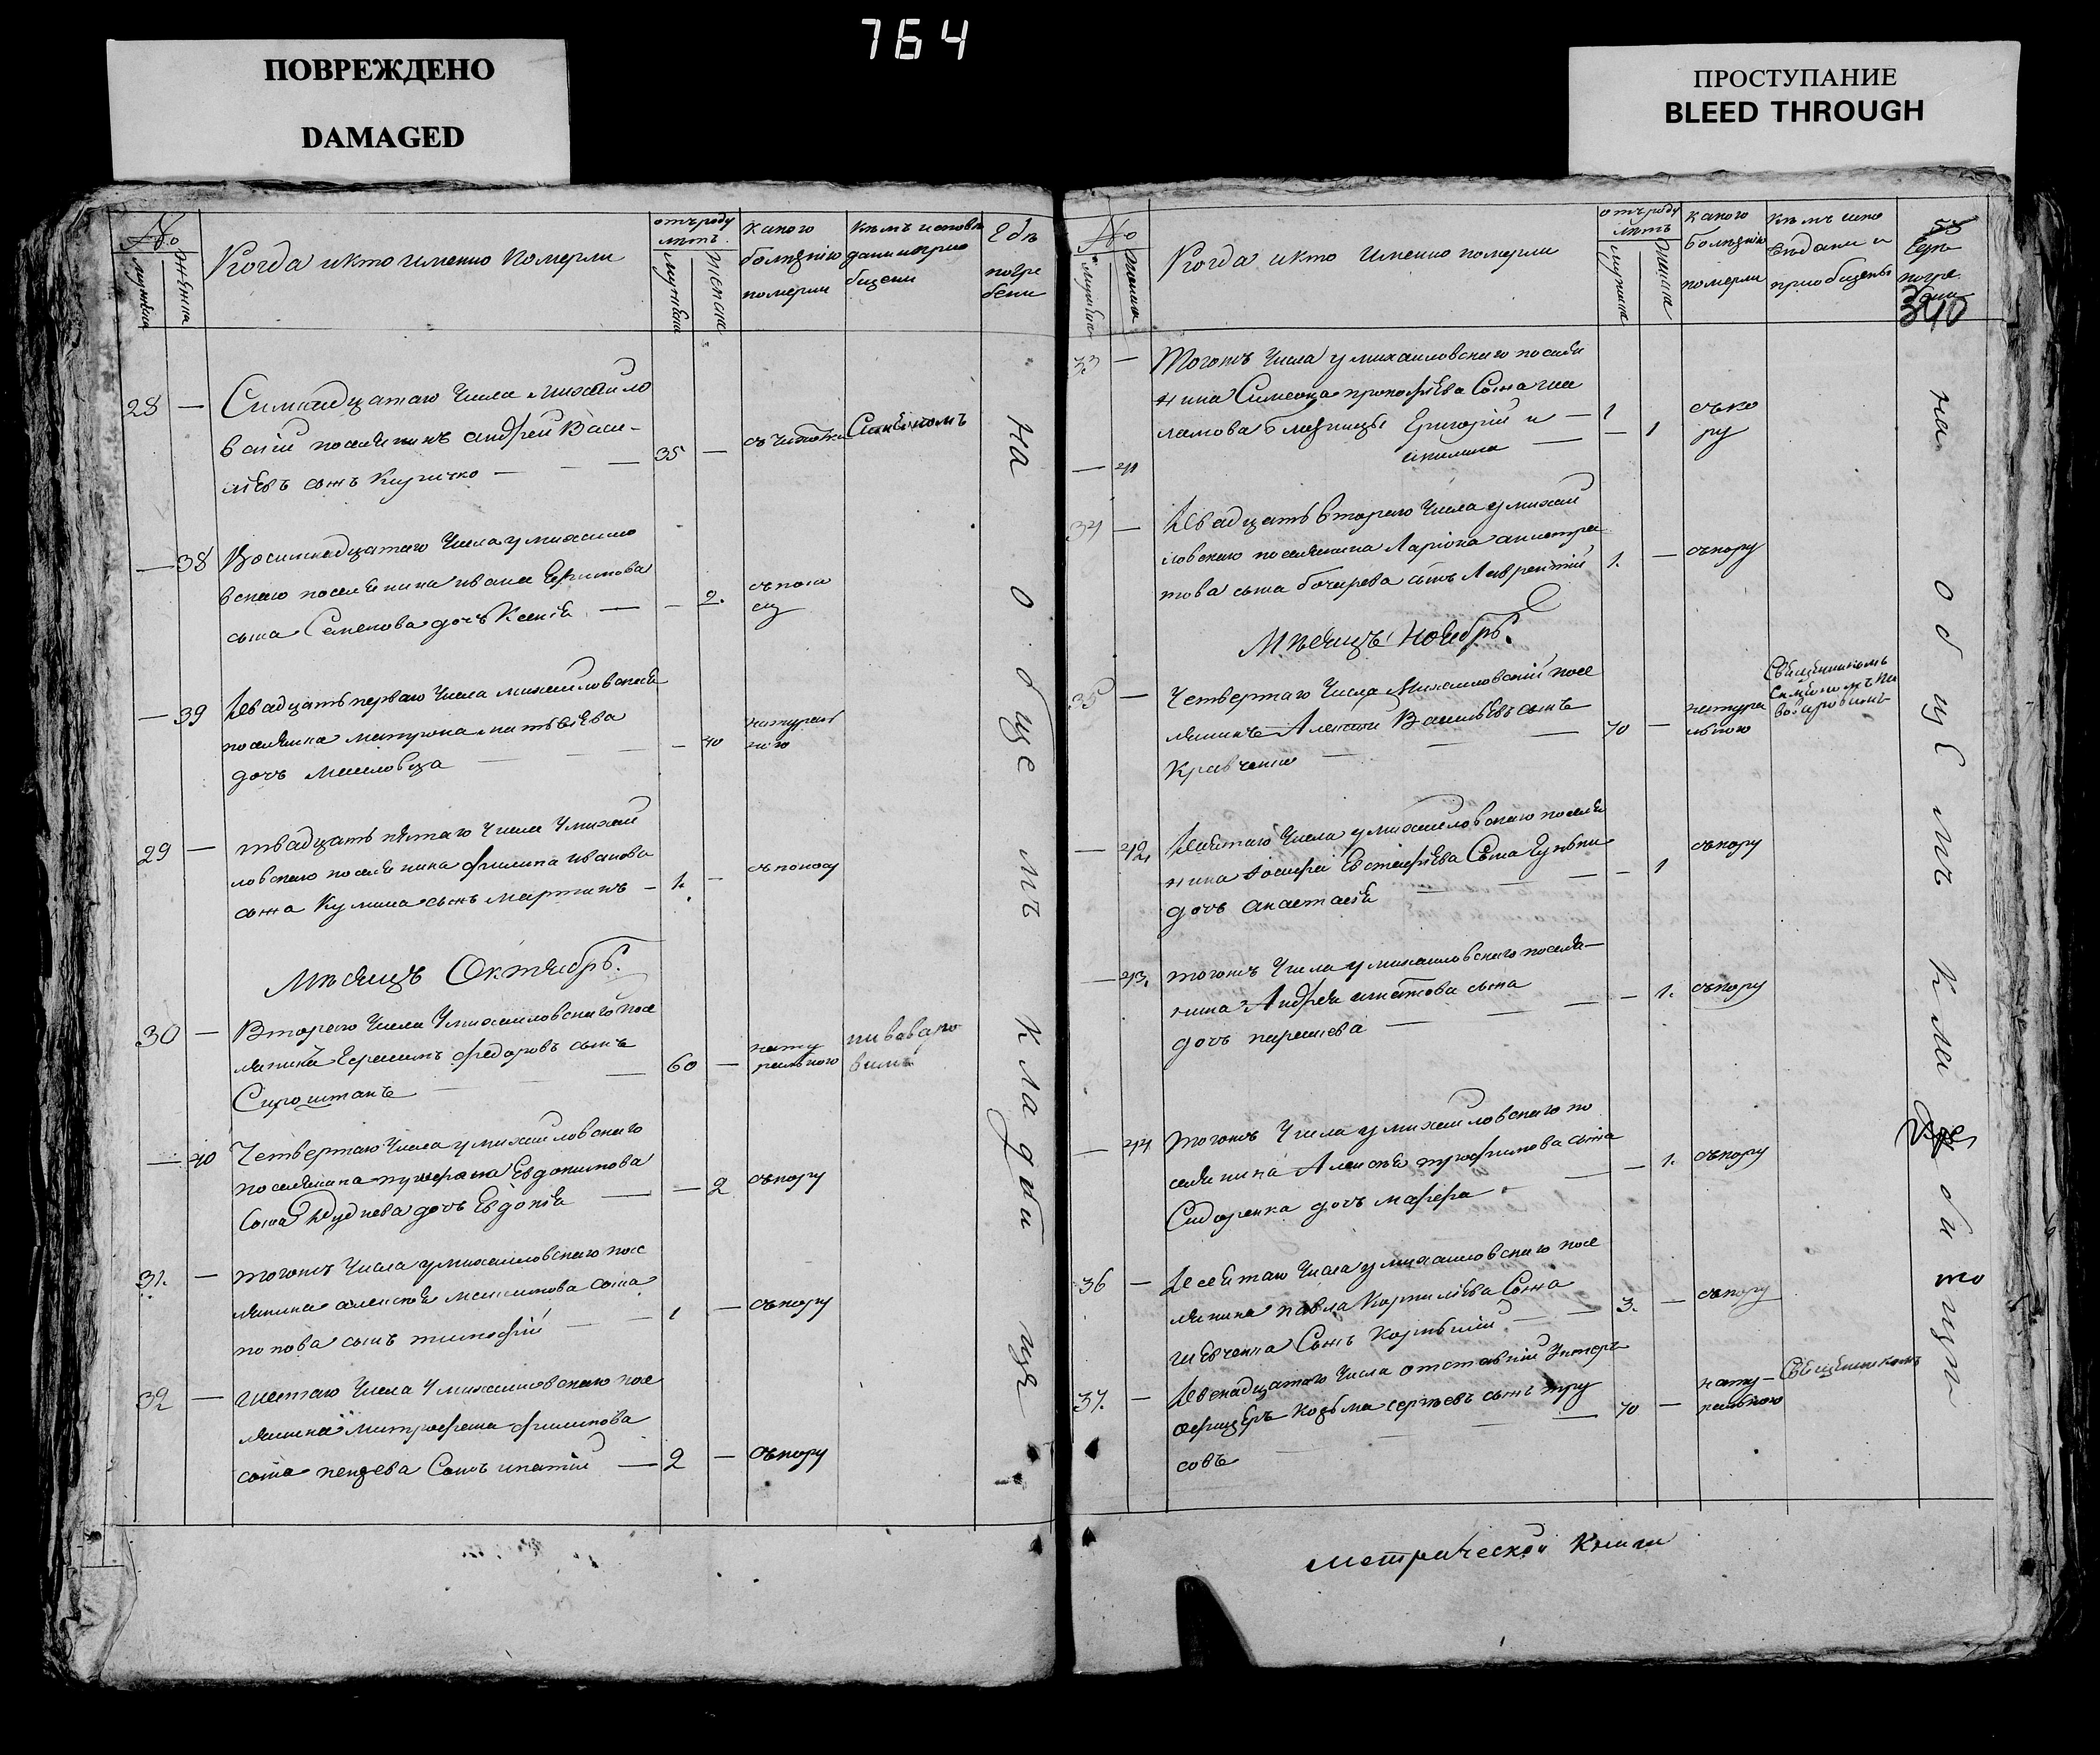 764
ПОВРЕЖДЕНО
DAMAGED
ПРОСТУПАНИЕ
BLEED THROUGH
№
мужеска
женска
Когда и кто именно померли
отъ роду
лѣтъ
мужеска
женска
какого
болѣзнію
померли
кѣмъ исповѣ
даны и прио
бщены
Гдѣ
погре
бены
28 —
Семнадцатаго числа михайло
вскій поселянинъ андрей Васи-
льевъ сынъ Киричко — — —
35 —
съ чахотки
Симеономъ
— 38
Восемнадцатаго числа у михайло
вскаго поселянина ивана Ефимова
сына Семенова дочь Ксенія —
— 2.
съ поно
су
— 39
двадцать перваго числа михайловская
поселянка матрона матвѣева
дочь — —
— 40
натураль
ною
29 —
твадцать пятаго числа у михай
ловскаго поселянина филипа иванова
сына Кулиша сынъ мартинъ —
1. —
съ поносу
Мѣсяцъ Октябрь.
30 —
Втораго числа михайловскаго посе
лянинъ Герасимъ федоровъ сынъ
Сироштанъ — — —
60 —
нату
ральною
пивоваро
вымъ
— 40
Четвертаго числа у михайловскаго
поселянина Евдокимова
сына Дуднева дочь Евдокія —
— 2
съ кору
31. —
тогожъ числа у михайловскаго посе
лянина алексѣя максимова сына
попова сынъ тимофій — —
1 —
съ кору
32 —
шестаго числа у михайловскаго посе
лянина митрофана филипова
сына сынъ игнатій —
2 —
съ кору
на обще мъ кладби щѣ
№
мужеска
женска
Когда и кто именно померли
отъ роду
лѣтъ
мужеска
женска
какого
болѣзнію
померли
кѣмъ испо
вѣданы и
приобщены
Гдѣ
погре
бены
340
33 —
Тогожъ числа у михайловскаго поселя
нина Симеона прокофіева сына
близнецы Григорій и —
акилина —
— 41
1
— 1
съ ко
ру
34 —
двадцать втораго числа у михай
ловскаго поселянина Ларіона
сына бочарова сынъ Лаврентій
1. —
съ кору
Мѣсяцъ Ноябрь.
35 —
Четвертаго числа Михайловскій посе
лянинъ Алексѣй Васильевъ сынъ
Кравченко — — —
70 —
натура
льною
Священникомъ
Симеономъ Пи
воваровымъ
— 42
девятаго числа у михайловскаго поселя
нина Іосифа Евстафіева сына
дочь анастасія — — —
— 1
съ кору
— 43.
тогожъ числа у михайловскаго поселя-
нина Андрея игнатова сына
дочь — — —
— 1.
съ кору
— 44
тогожъ числа у михайловскаго по
селянина Алексѣя трофимова сына
Сидоренка дочь марфа — —
— 1.
съ кору
36 —
десятаго числа у михайловскаго посе
лянина павла Корнилѣева сына
шевченка сынъ — —
3. —
съ кору
37. —
двенадцатаго числа отставній унтеръ
офицеръ козьма сергѣевъ сынъ тру
совъ — — —
70 —
нату-
ральною
Священникомъ
на обще мъ клад би щѣ
метрической книги